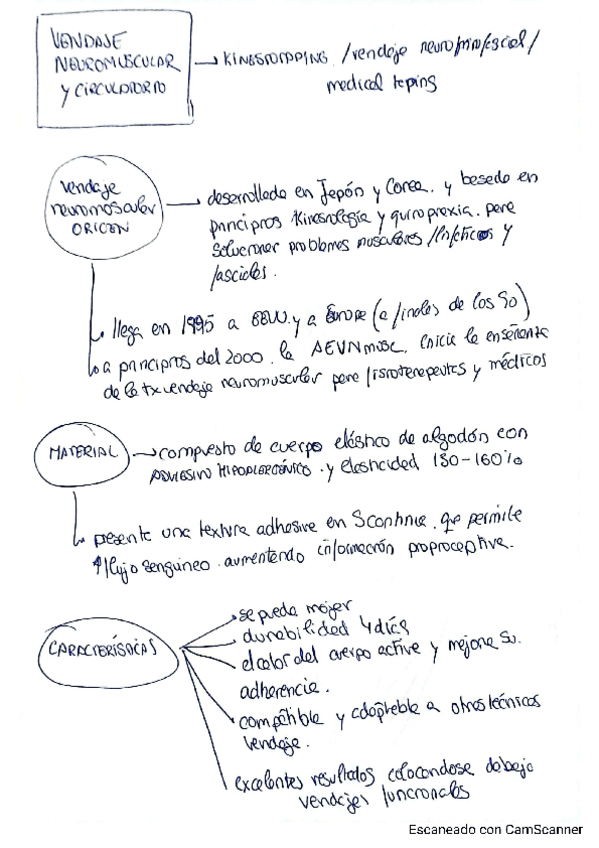 VENDAJE
NEUROMUSCULAR
Y CIRCULATORIO
→ KINESIOTAPPING /vendaje neuromiofascial/
medical taping
Vendaje
neuromuscular
ORIGEN
→ desarrollada en Japón y Corea. y basado en
principios Kinesiología y quiropraxia. para
solucionar problemas musculares /linfáticos y
fasciales.
llega en 1995 a EEUU. y a Europa (a finales de los 90)
a principios del 2000. la AEVNMUSC. inicia la enseñanza
de la tx vendaje neuromuscular para fisioterapeutas y médicos
MATERIAL
→ compuesto de cuerpo elástico de algodón con
ADHESIVO HIPOALERGÉNICO. y elasticidad 130-160%
presenta una textura adhesiva en S continua. que permite
↑ flujo sanguíneo. aumentando información propioceptiva.
CARACTERÍSTICAS
se puede mojar
durabilidad 4 días
el calor del cuerpo activa y mejora su
adherencia.
compatible y adaptable a otras técnicas
vendaje.
excelentes resultados colocandose debajo
vendajes funcionales
Escaneado con CamScanner